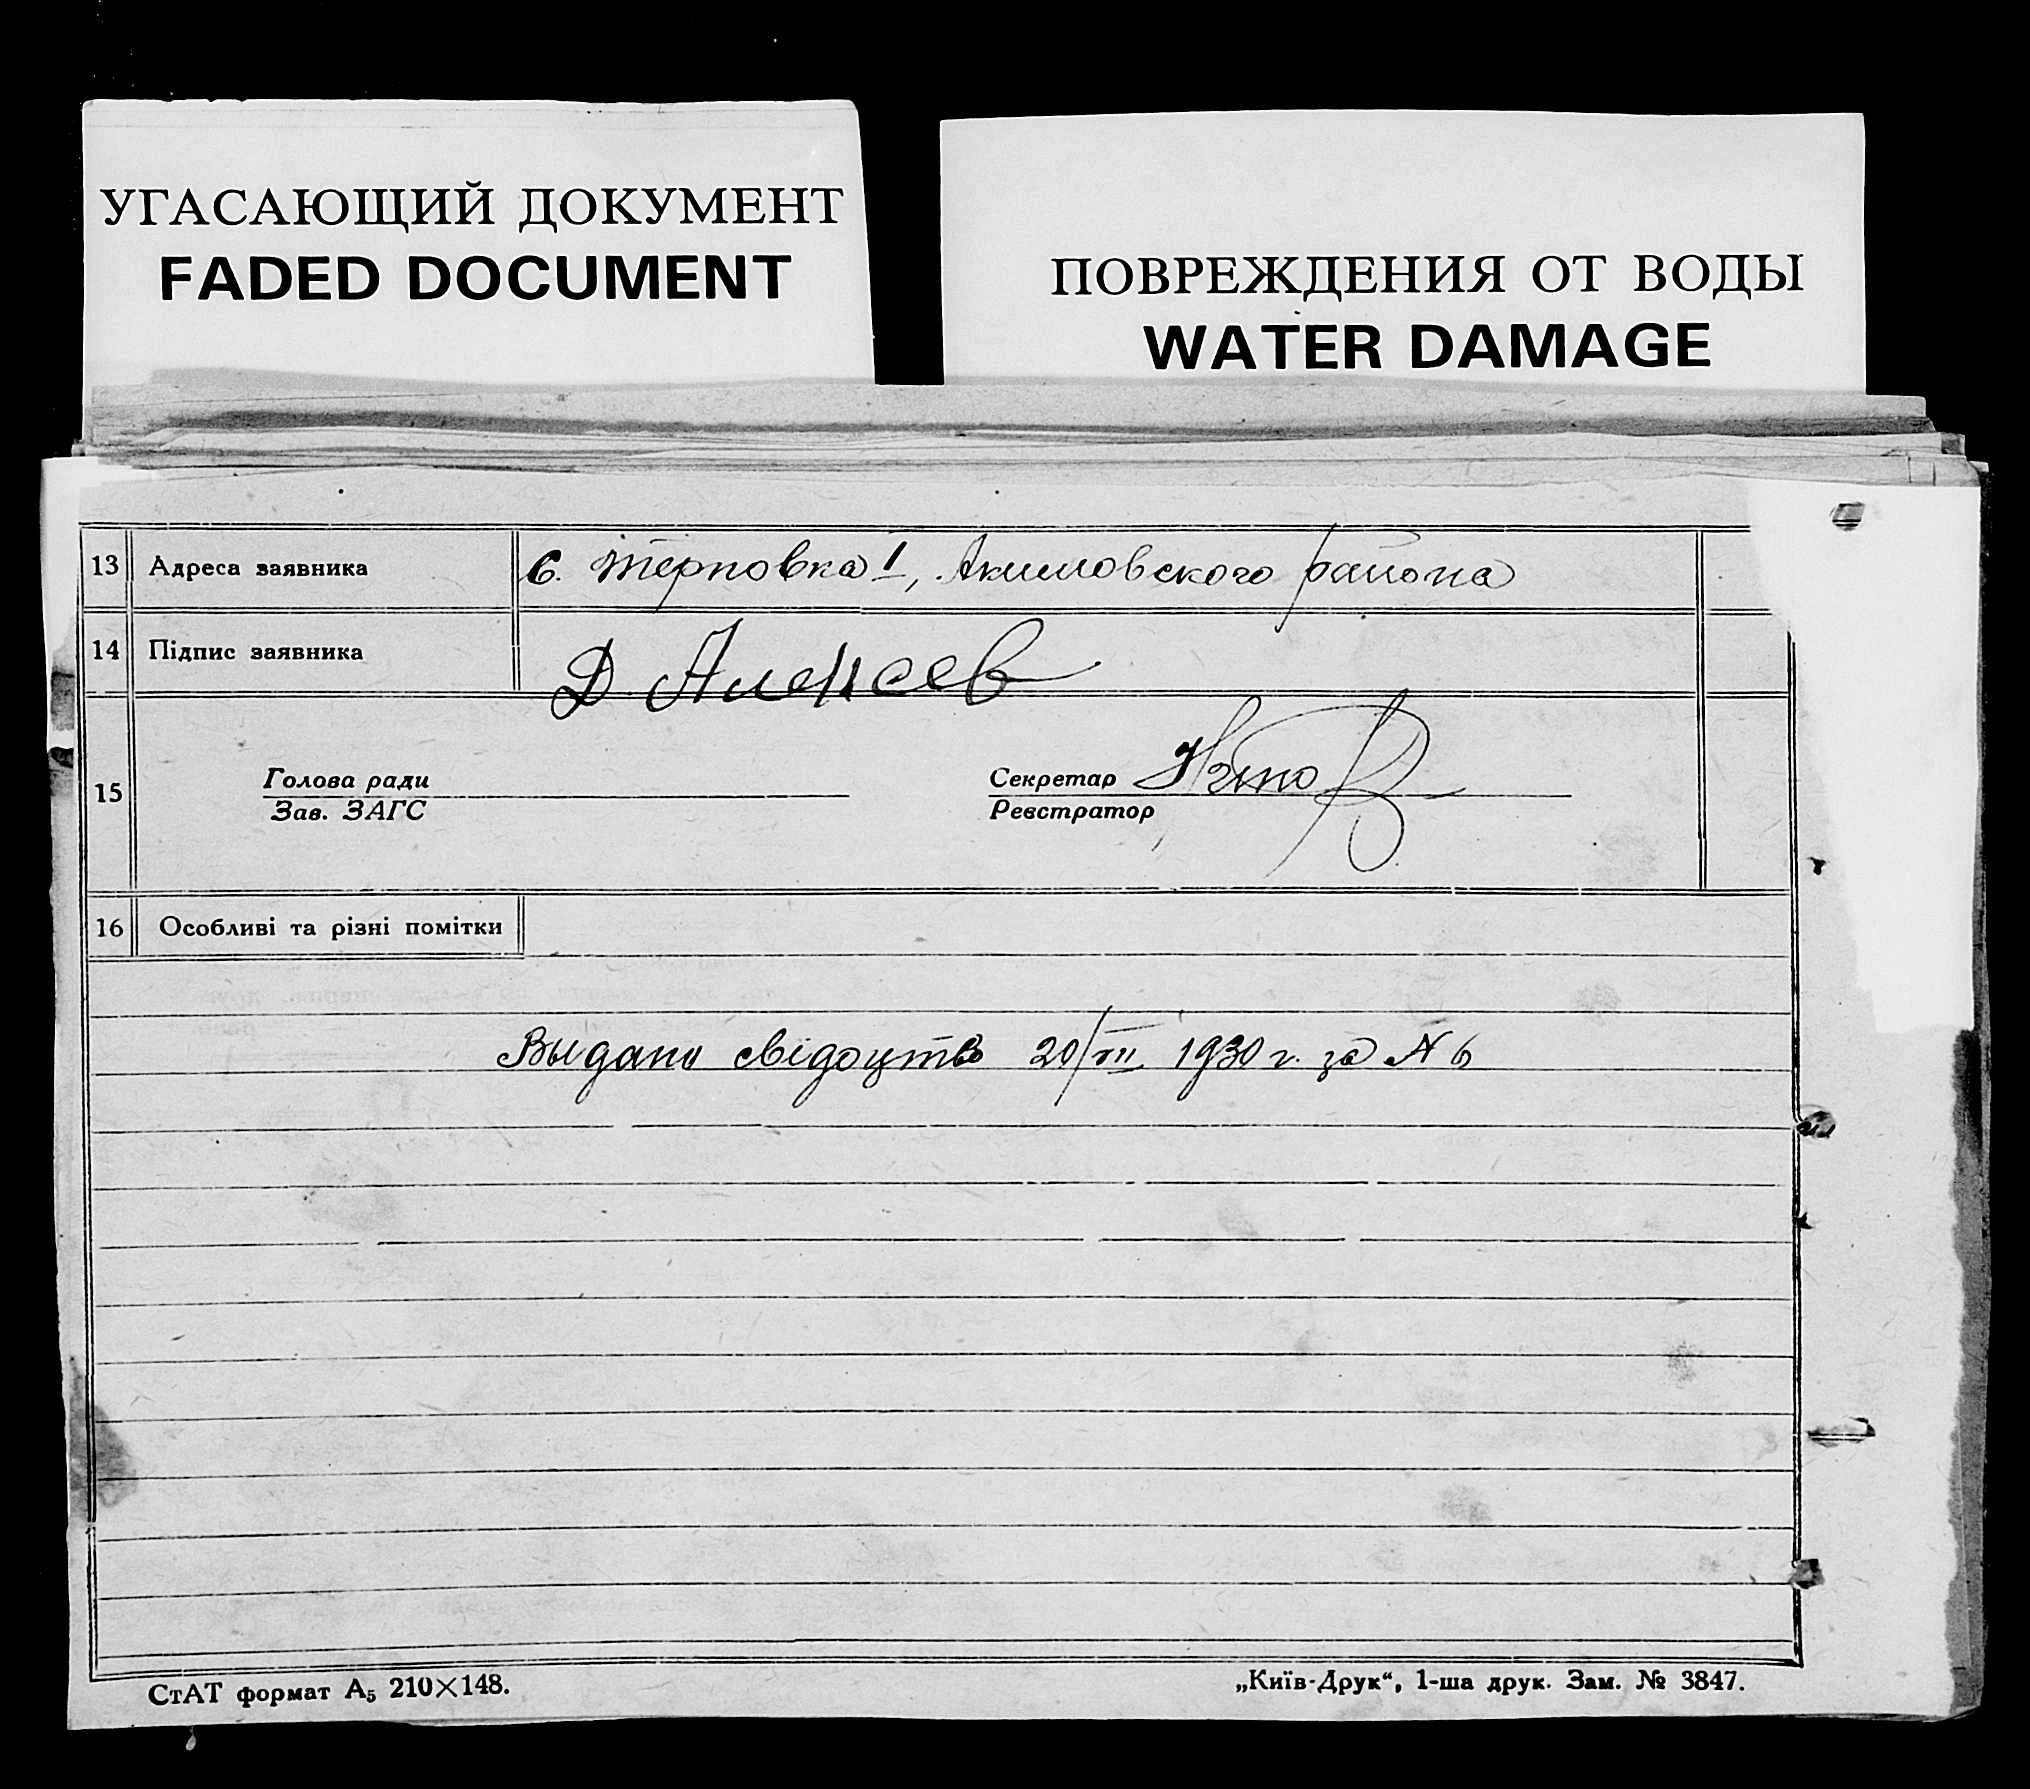 УГАСАЮЩИЙ ДОКУМЕНТ
FADED DOCUMENT
ПОВРЕЖДЕНИЯ ОТ ВОДЫ
WATER DAMAGE
13 Адреса заявника с. Терповка I, Акимовского района
14 Підпис заявника Д. Алексеев
15 Голова ради
Зав. ЗАГС
Секретар
Реєстратор
16 Особливі та різні помітки
Выдано свідоцтво 20/VII 1930 г. за N 6
СтАТ формат А₅ 210×148.
„Київ-Друк“, 1-ша друк. Зам. № 3847.